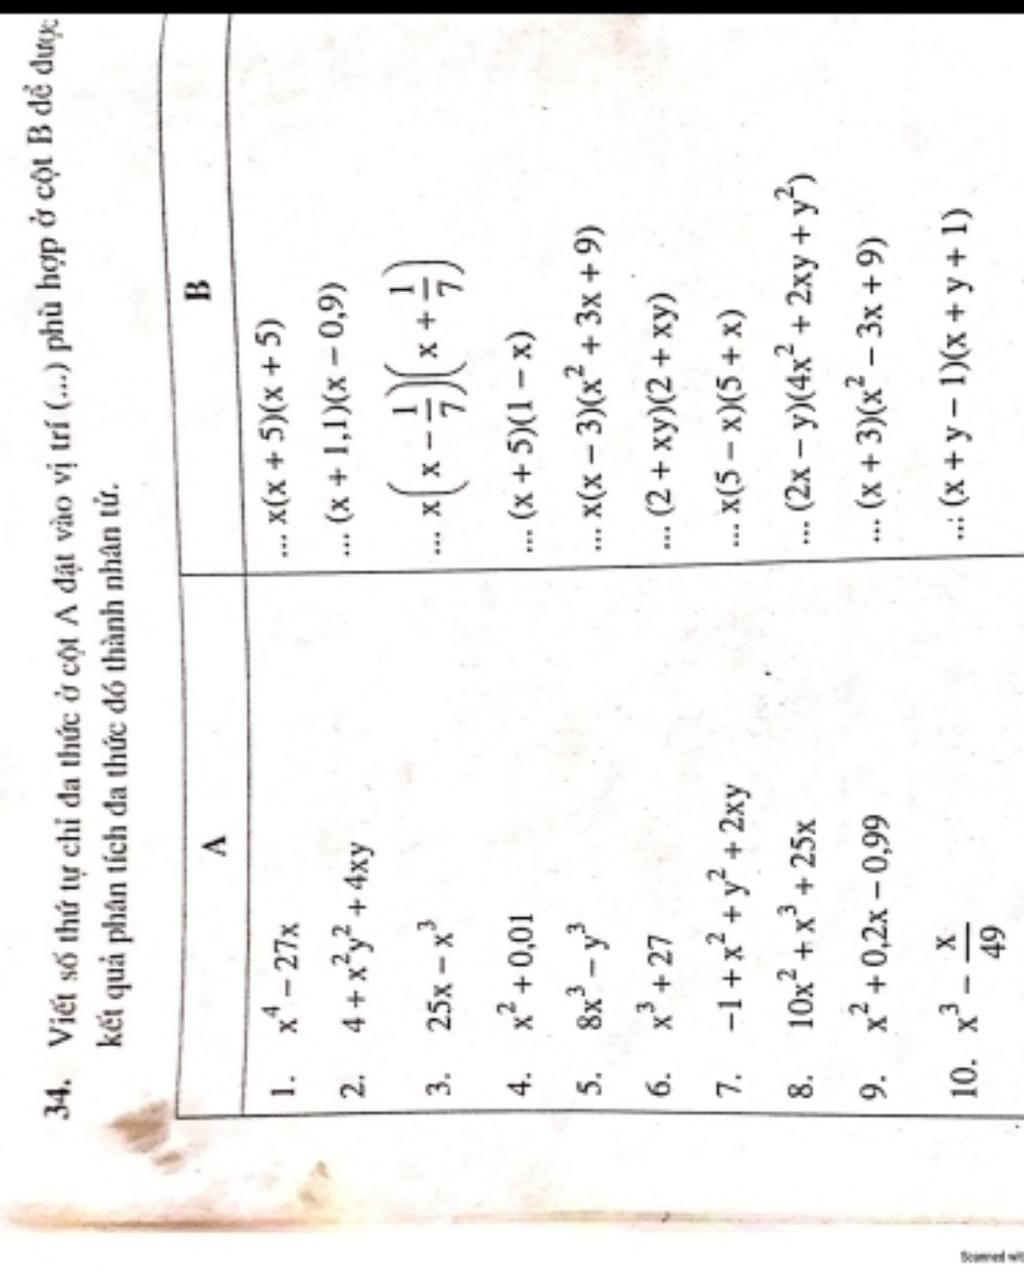 34. Viết số thứ tự chỉ đa thức ở cột A đặt vào vị trí (...) phù hợp ở cột B để được
kết quả phân tích đa thức đó thành nhân tử.
A B
1. x⁴ – 27x ... x(x + 5)(x + 5)
2. 4 + x²y² + 4xy ... (x + 1,1)(x – 0,9)
3. 25x – x³ ... x(x – 1/7)(x + 1/7)
4. x² + 0,01 ... (x + 5)(1 – x)
5. 8x³ – y³ ... x(x – 3)(x² + 3x + 9)
6. x³ + 27 ... (2 + xy)(2 + xy)
7. –1 + x² + y² + 2xy ... x(5 – x)(5 + x)
8. 10x² + x³ + 25x ... (2x – y)(4x² + 2xy + y²)
9. x² + 0,2x – 0,99 ... (x + 3)(x² – 3x + 9)
10. x³ – x/49 ... (x + y – 1)(x + y + 1)
Scanned